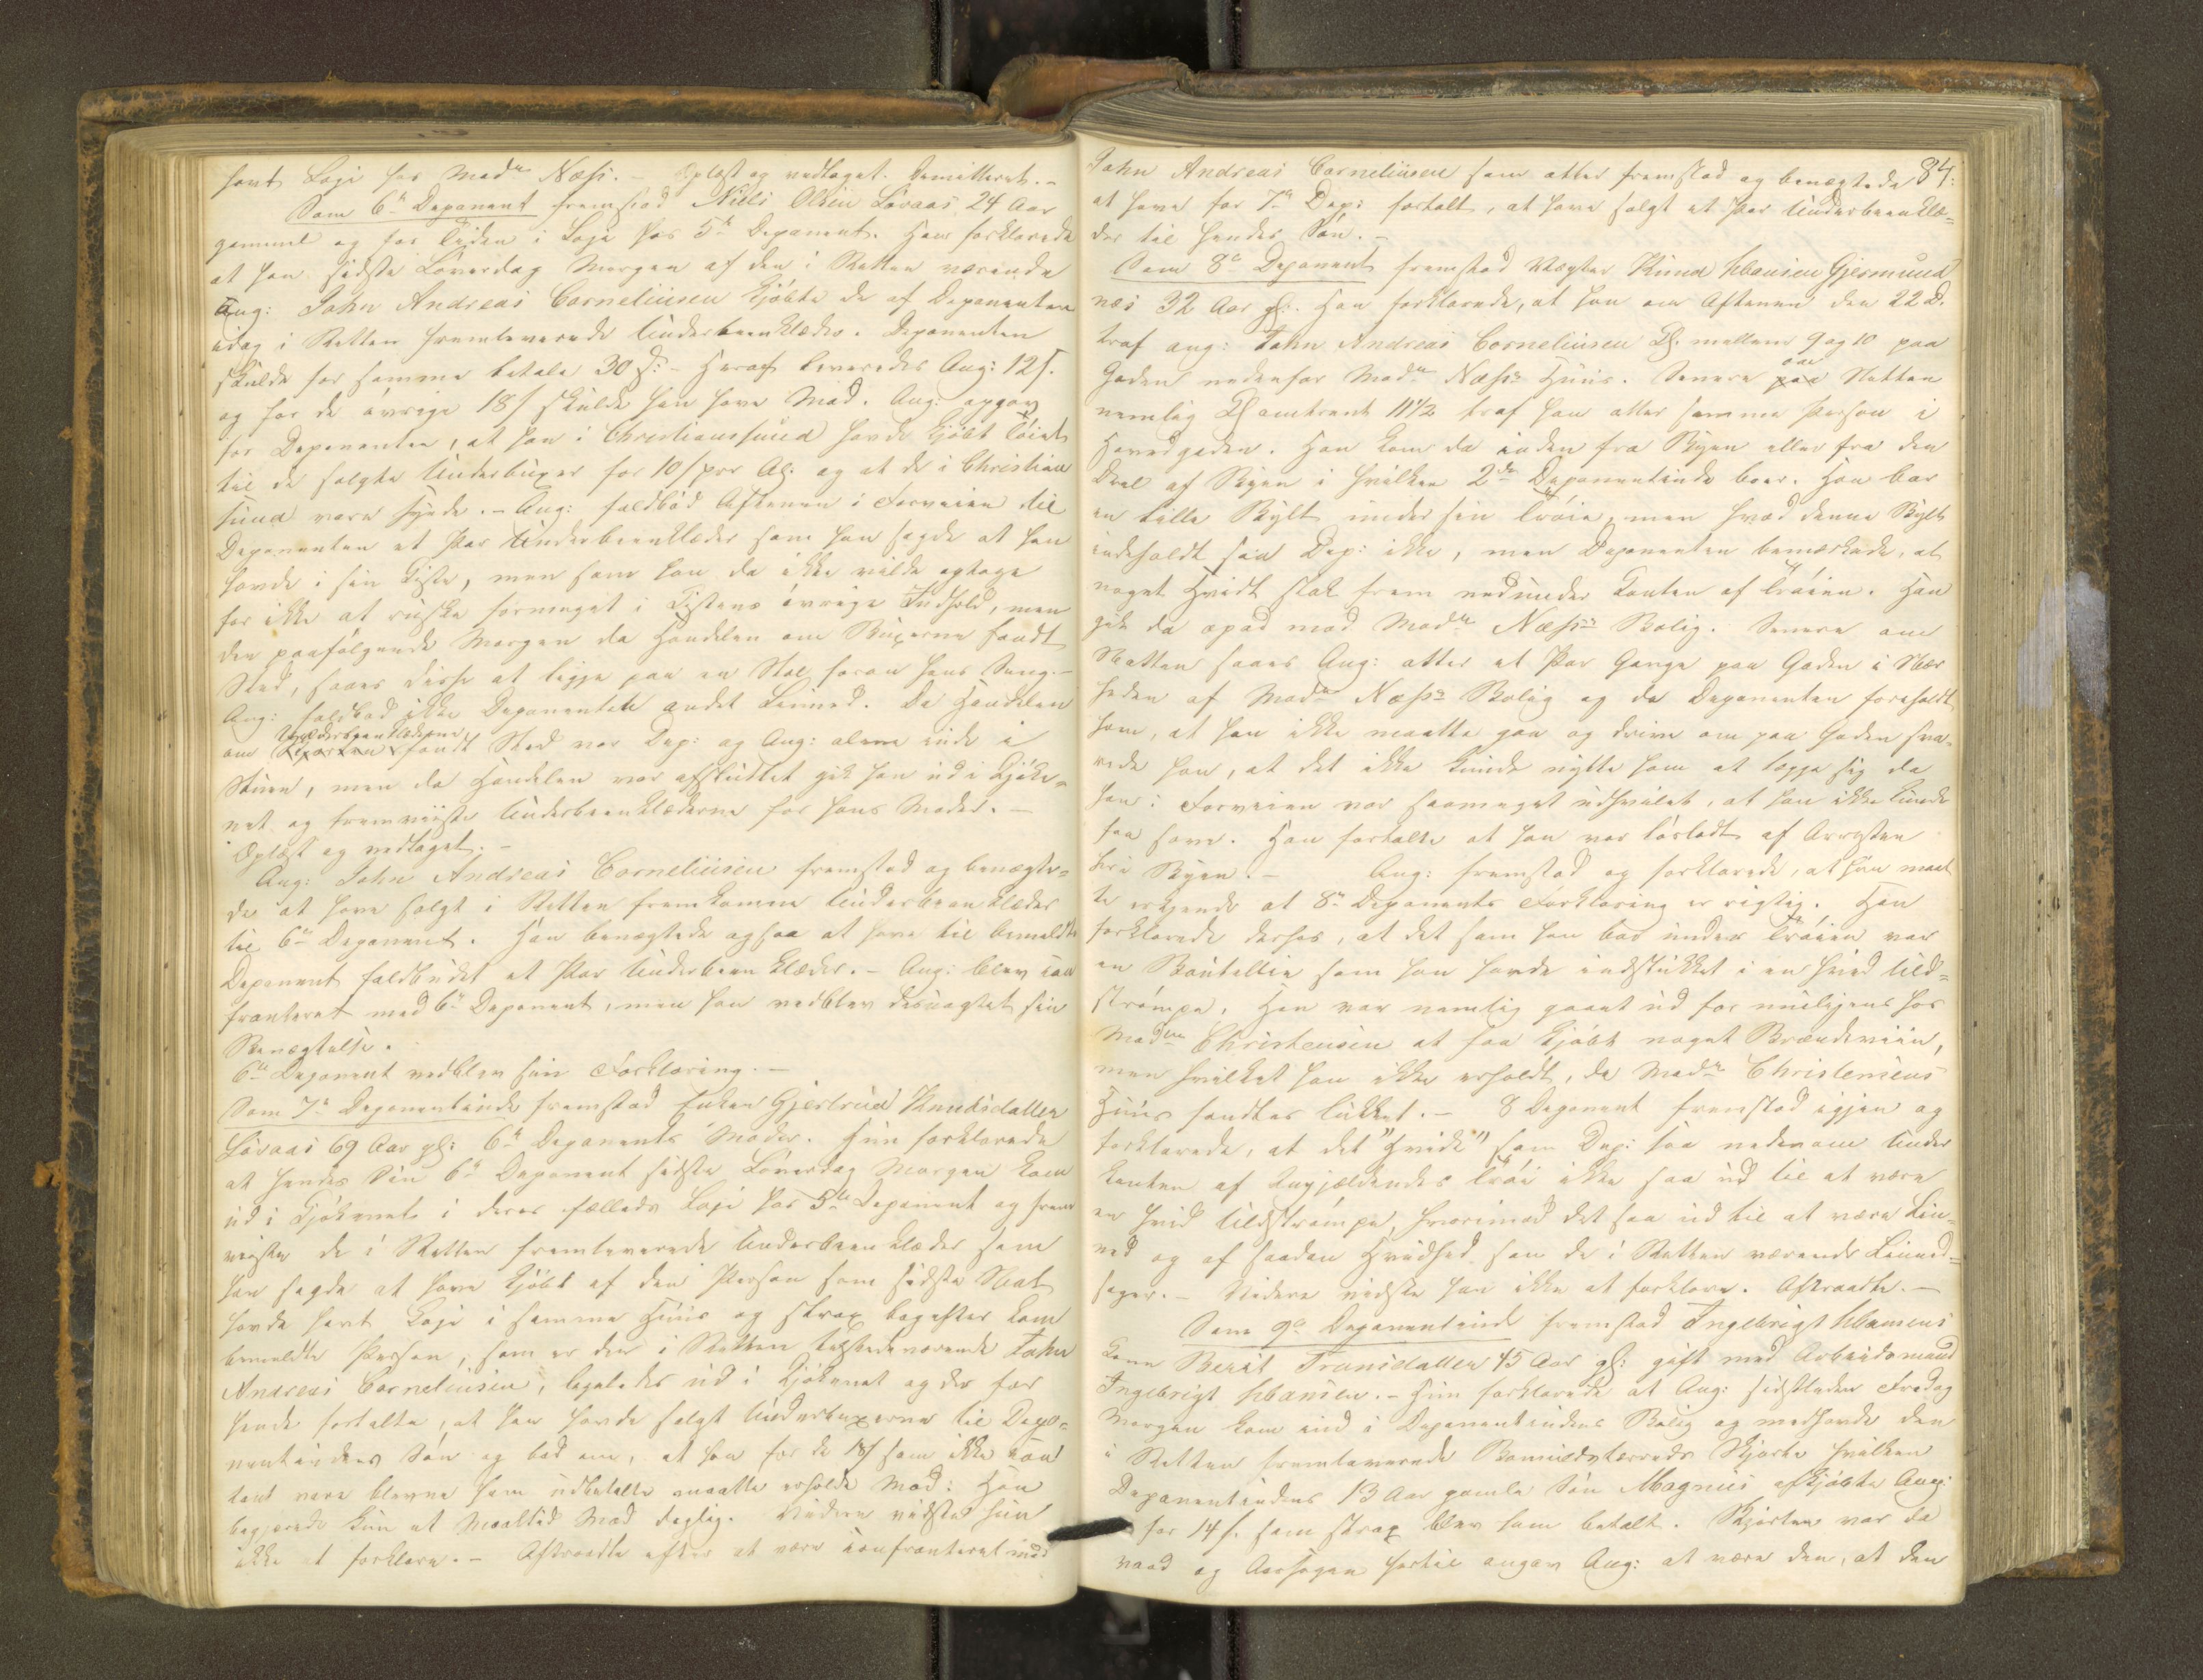 havt Logi hos Madm Næss. – Oplæst og vedtaget. Demitteret. –
Som 6te Deponent fremstod Niels Olsen Løvaas 24 Aar
gammel og for Tiden i Logi hos 5te Deponent. Han forklarede
at han sidste Løverdag Morgen af den i Retten værende
Ang: John Andreas Corneliussen kjøbte de af Deponenten
idag i Retten fremleverede Underbeenklæder. Deponenten
skulde for samme betale 30 s: – Heraf leveredes Ang: 12 s.
og for de øvrige 18 s skulde han have Mad. Ang: opgav
for Deponenten, at han i Christianssund havde kjøbt Tøiet
til de solgte Underbuxer for 10 s pr Al. og at de i Christian
sund vare syede. – Ang: falbød Aftenen i Forveien til
Deponenten et Par Underbeenklæder som han sagde at han
havde i sin Kiste, men som han da ikke vilde optage
for ikke at ruske formeget i Kistens øvrige Indhold, men
den paafølgende Morgen da Handelen om Buxerne fandt
Sted, saaes disse at ligge paa en Stol foran hans Seng. –
Ang: falbød ikke Deponenten andet Linned. Da Handelen
om Underbeenklæderne fandt Sted var Dep: og Ang: alene inde i
Stuen, men da Handelen var afsluttet gik han ud i Kjøke-
net og fremviiste Underbeenklæderne for hans Moder. –
Oplæst og vedtaget. –
Ang: John Andreas Corneliussen fremstod og benægte-
de at have solgt i Retten fremkomne Underbeenklæder
til 6te Deponent. Han benægtede ogsaa at have til bemeldte
Deponent falbudet et Par Underbeenklæder. – Ang: blev con
fronteret med 6te Deponent, men han vedblev desuagtet sin
Benægtelse.
6te Deponent vedblev sin Forklaring. –
Som 7de Deponentinde fremstod Enken Gjertrud Knudsdatter
Løvaas 69 Aar gl: 6te Deponents Moder. Hun forklarede
at hendes Søn 6te Deponent sidste Løverdag Morgen kom
ud i Kjøkenet i deres fælleds Logi hos 5te Deponent og frem
viiste de i Retten fremleverede Underbeenklæder som
han sagde at have kjøbt af den Person som sidste Nat
havde havt Logi i samme Huus og strax bagefter kom
bemeldte Person, som er den i Retten tilstedeværende John
Andreas Corneliussen, ligeledes ud i Kjøkenet og der for
hende fortalte, at han havde solgt Underbuxerne til Depo-
nentindens Søn og bad om, at han for de 18 s som ikke con
tant vare blevne ham udbetalte maatte erholde Mad: Han
begjærede kun et Maaltid Mad daglig. Videre vidste hun
ikke at forklare. – Aftraadte efter at være confronteret med
84:
John Andreas Corneliussen som atter fremstod og benægtede
at have for 7de Dep: fortalt, at have solgt et Par Underbeenklæ-
der til hendes Søn. –
Som 8de Deponent fremstod Vægter Knud Hansen Gjermund
næs 32 Aar gl:. Han forklarede, at han om Aftenen den 22 d.
traf ang: John Andreas Corneliussen Kl. mellem 9 og 10 paa
Gaden nedenfor Madm Næss's Huus. Senere om Natten
nemlig Kl omtrent 11 1/2 traf han atter samme Person i
Hovedgaden. Han kom da inden fra Byen eller fra den
Deel af Byen i hvilken 2den Deponentinde boer. Han bar
en lille Bylt under sin Trøie, men hvad denne Bylt
indeholdt saa Dep: ikke, men Deponenten bemærkede, at
noget Hvidt stak frem nedunder Kanten af Trøien. Han
gik da opad mod Madm Næss's Bolig. Senere om
Natten saaes Ang: atter et Par Gange paa Gaden i Nær
heden af Madm Næss's Bolig og da Deponenten foreholdt
ham, at han ikke maatte gaa og drive om paa Gaden sva-
rede han, at det ikke kunde nytte ham at lægge sig da
han i Forveien var saameget udhvilet, at han ikke kunde
faa sove. Han fortalte at han var løsladt af Arresten
her i Byen. – Ang: fremstod og forklarede, at han maat
te erkjende at 8de Deponents Forklaring er rigtig. Han
forklarede derhos, at det som han bar under Trøien var
en Bouteille som han havde indstukket i en hvid Uld-
strømpe. Han var nemlig gaaet ud for muligens hos
Madme Christensen at faa kjøbt noget Brændeviin,
men hvilket han ikke erholdt, da Madm Christensens
Huus fandtes lukket. – 8 Deponent fremstod igjen og
forklarede, at det "Hvide" som Dep: saa nedenom Under
kanten af Angjældendes Trøi ikke saa ud til at være
en hvid Uldstrømpe, hvorimod det saa ud til at være Lin-
ned og af saadan Hvidhed som de i Retten værende Linned-
sager. – Videre vidste han ikke at forklare. Aftraadte. –
Som 9de Deponentinde fremstod Ingebrigt Hansens
Kone Berit Transdatter 45 Aar gl: gift med Arbeidsmand
Ingebrigt Hansen. – Hun forklarede at Ang: sidstleden Fredag
Morgen kom ind i Deponentindens Bolig og medhavde den
i Retten fremleverede Bomuldslærreds Skjorte hvilken
Deponentindens 13 Aar gamle Søn Magnus afkjøbte Ang:
for 14 s. som strax blev ham betalt. Skjorten var da
vaad og Aarsagen hertil angav Ang: at være den, at den